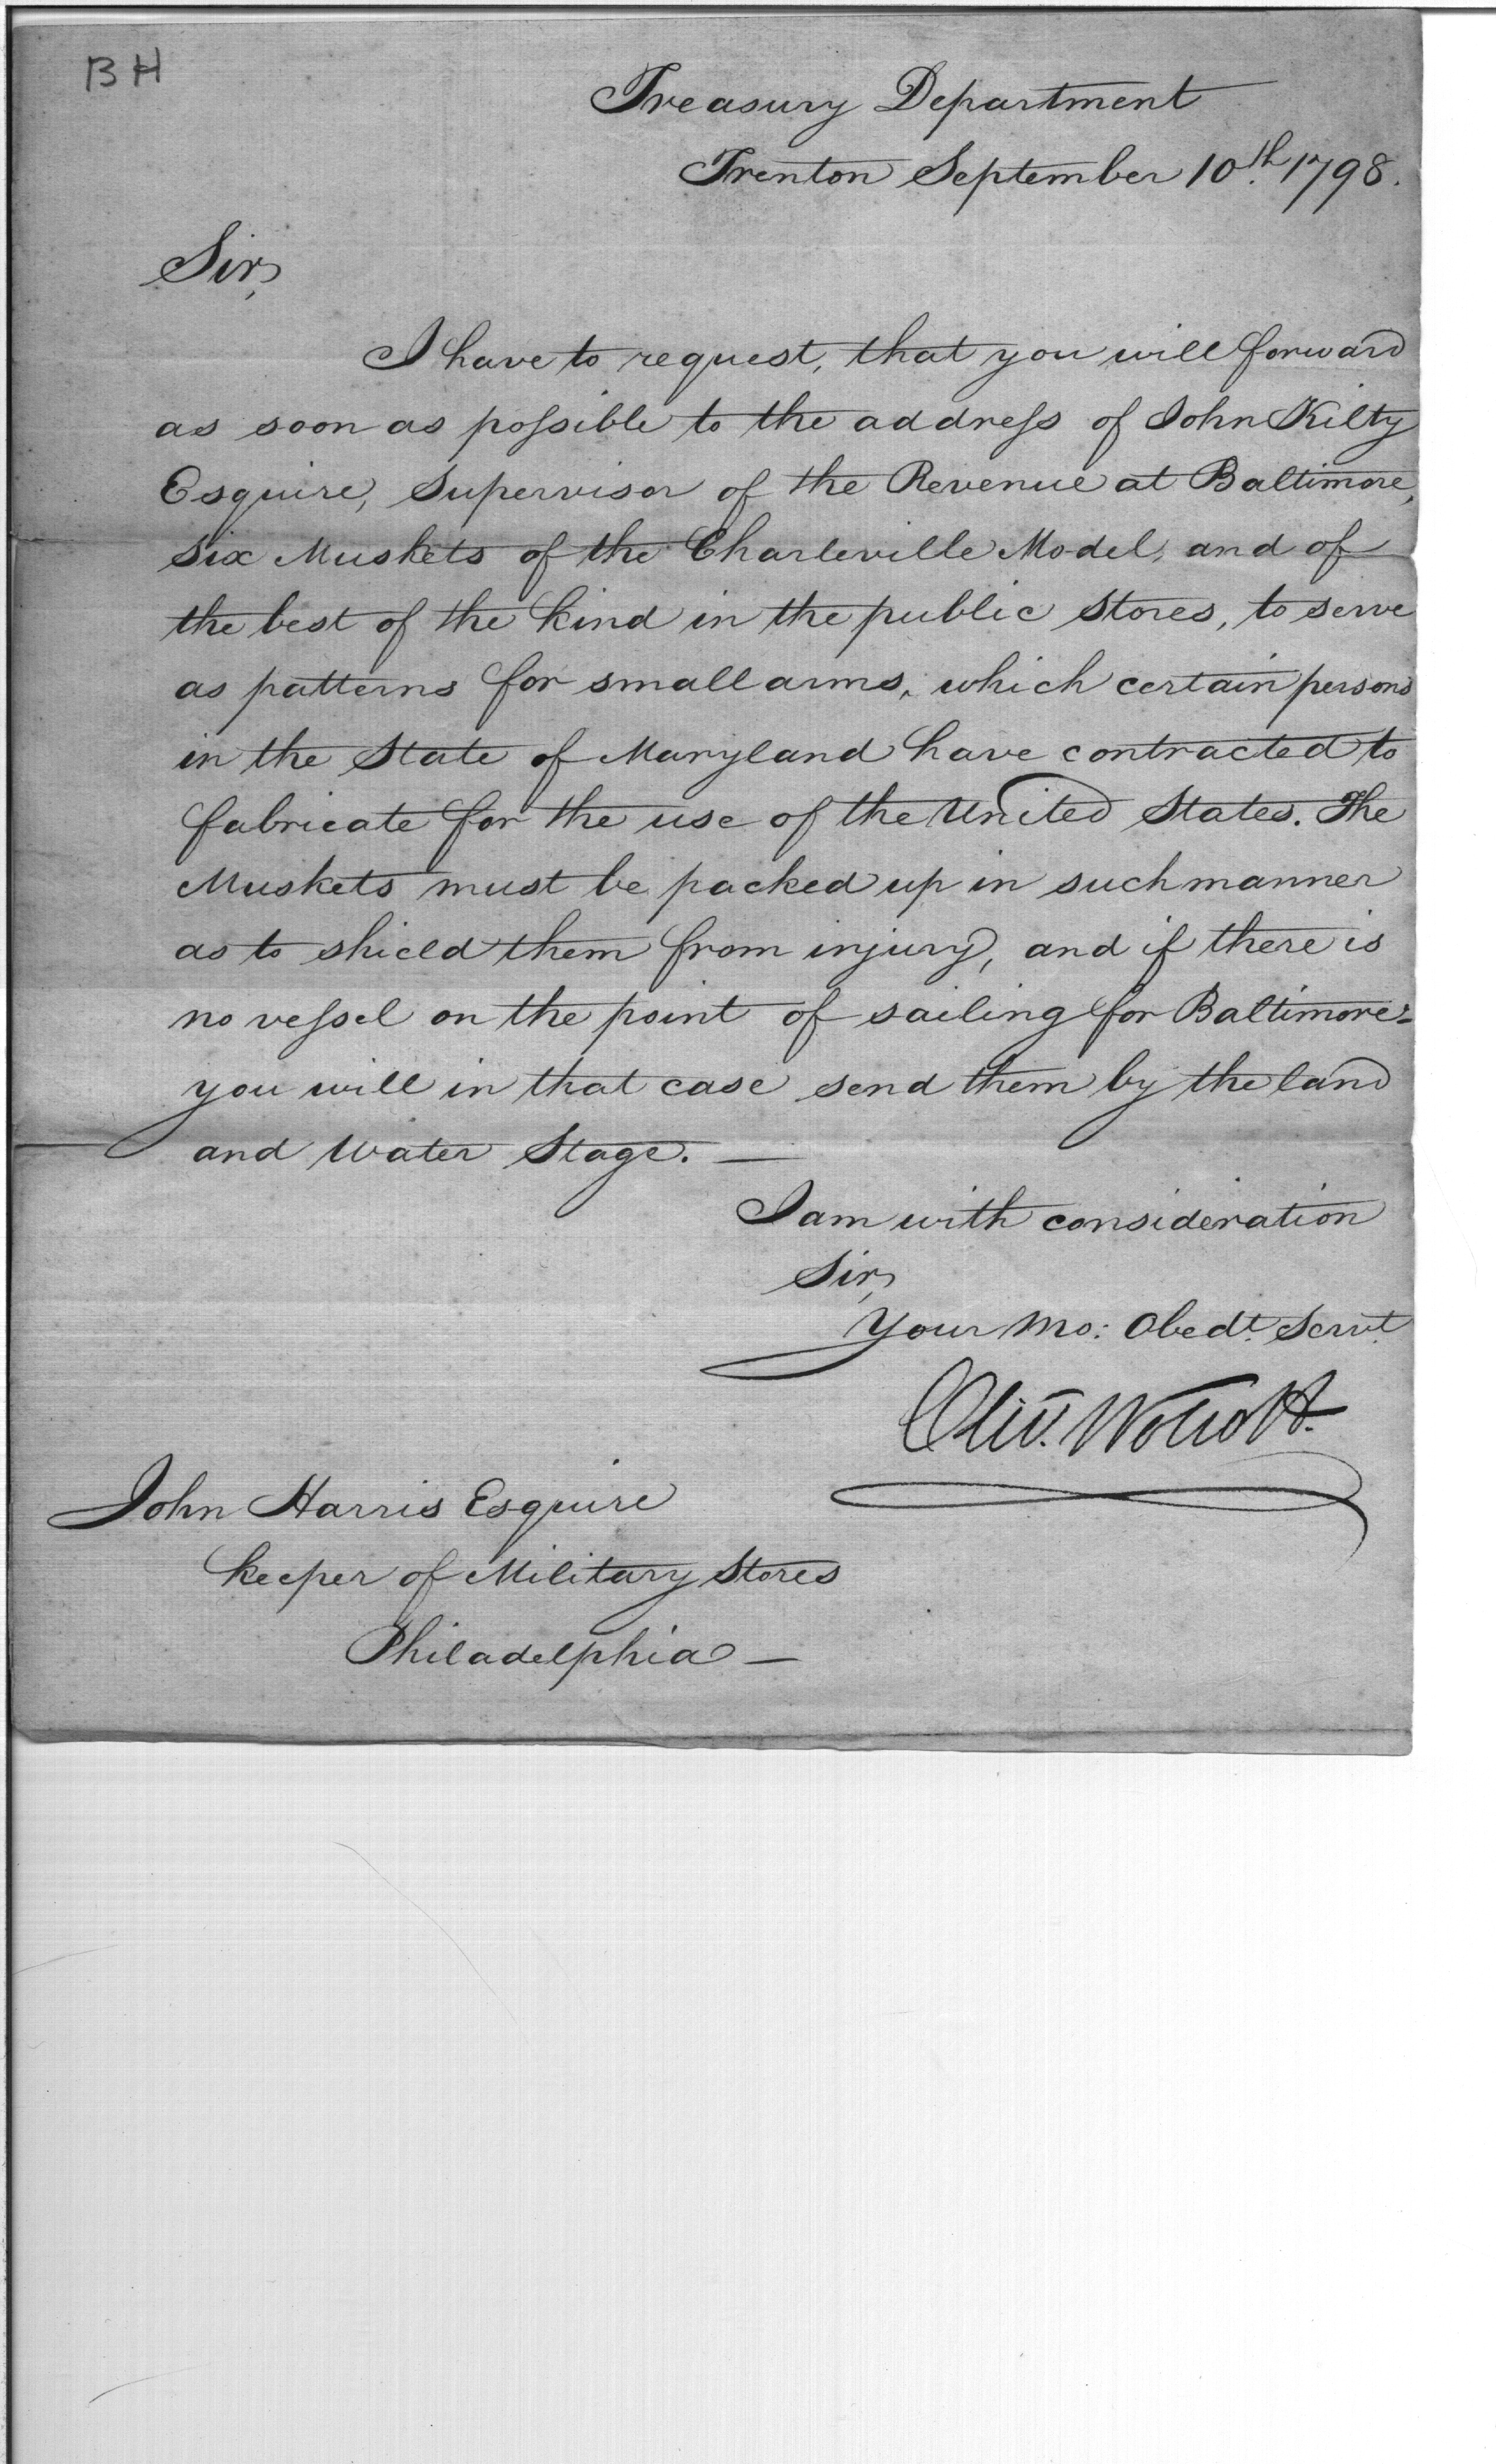 BH
Treasury Department
Trenton September 10th. 1798.
Sir,
I have to request, that you will forward
as soon as poſsible to the addreſs of John Kilty
Esquire, Supervisor of the Revenue at Baltimore,
six Muskets of the Charleville Model, and of
the best of the kind in the public Stores, to serve
as patterns for small arms, which certain persons
in the State of Maryland have contracted to
fabricate for the use of the United States. The
Muskets must be packed up in such manner
as to shield them from injury, and if there is
no veſsel on the point of sailing for Baltimore-
you will in that case send them by the land
and Water Stage. —
I am with consideration
Sir,
Your Mo: Obedt. Servt.
Oliv. Wolcott.
John Harris Esquire
keeper of Military Stores
Philadelphia —